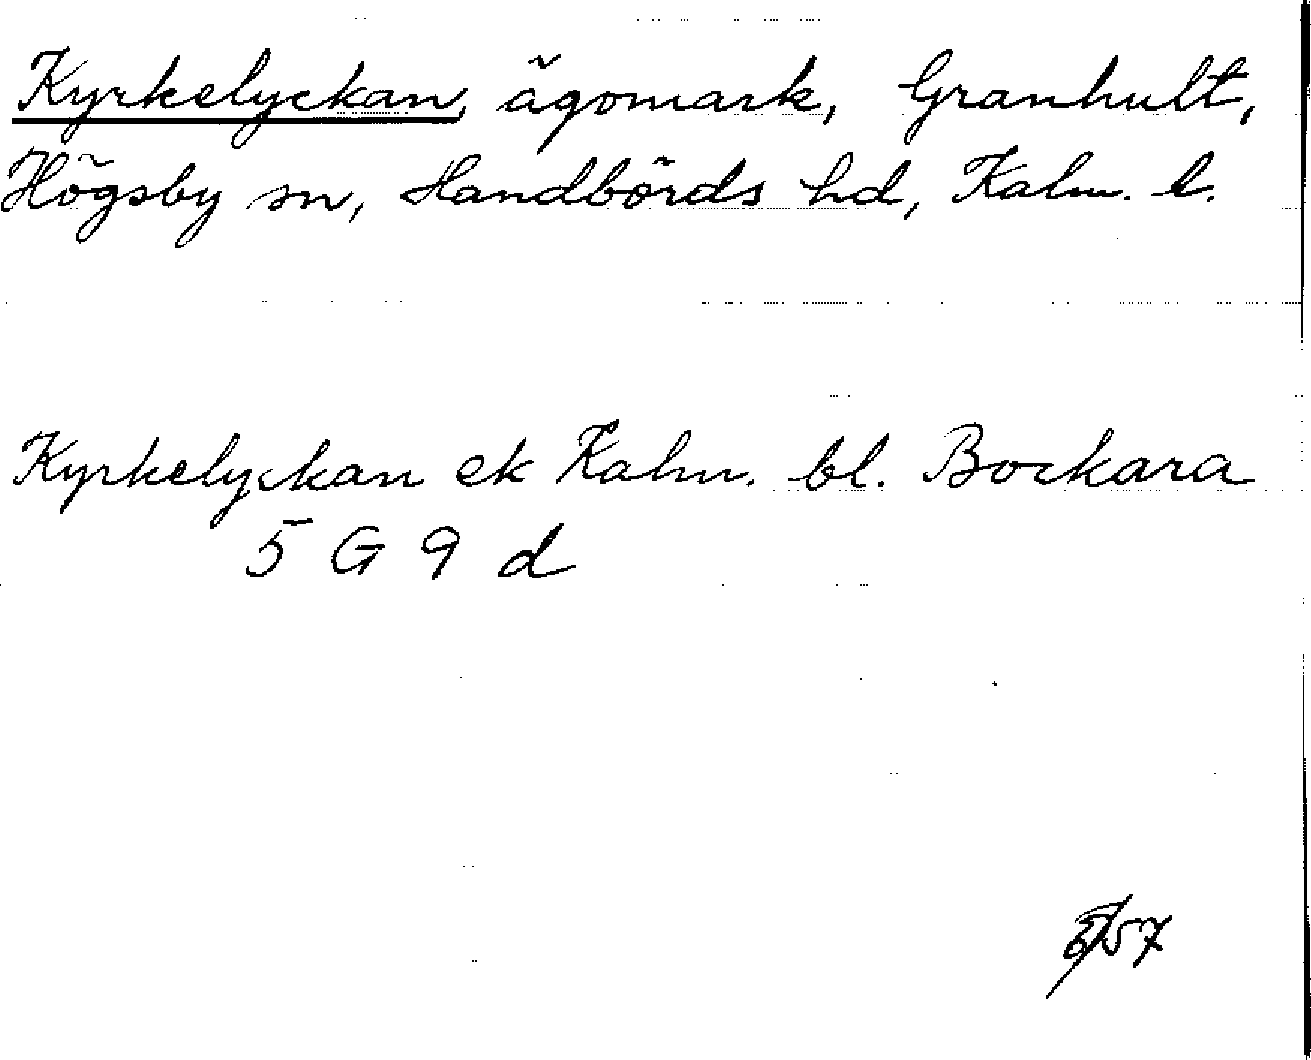 Kyrkelyckan, ägomark, Granhult,
Högsby sn, Handbörds hd, Kalm. l.
Kyrkelyckan ek Kalm. bl. Bockara
5 G 9 d